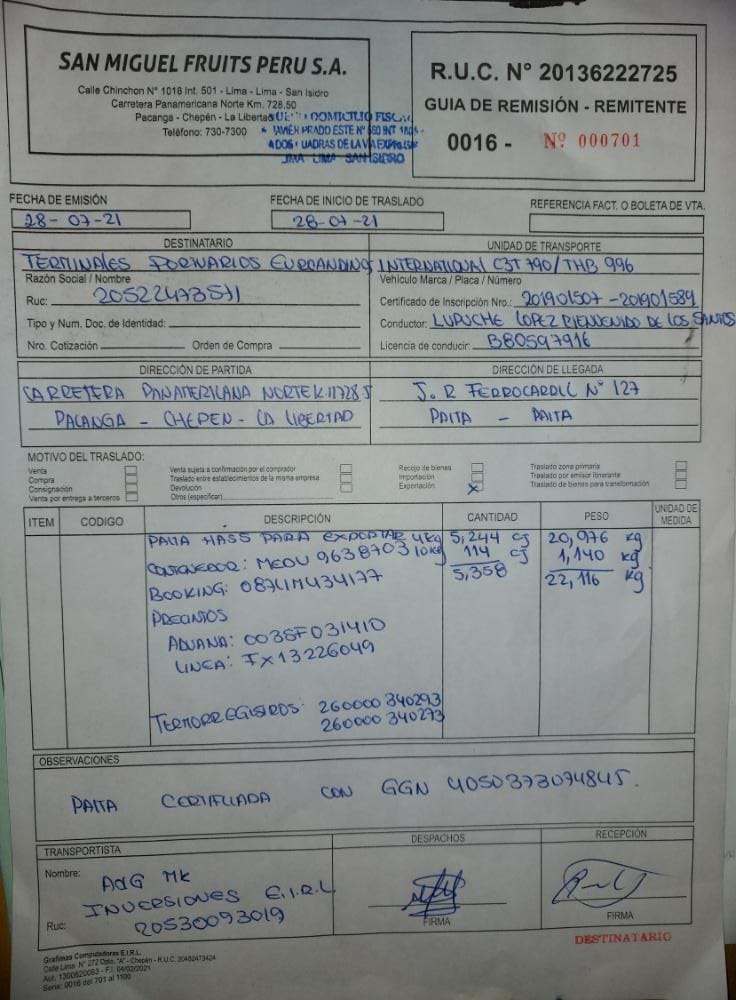 SAN MIGUEL FRUITS PERU S.A.
Calle Chinchon N° 1018 Int. 501 - Lima - Lima - San Isidro
Carretera Panamericana Norte Km. 728.50
Pacanga - Chepén - La Libertad
Teléfono: 730-7300
DOMICILIO FISCAL
JAVIER PRADO ESTE N°
LIMA LIMA SAN ISIDRO
R.U.C. N° 20136222725
GUIA DE REMISIÓN - REMITENTE
0016 - Nº 000701
FECHA DE EMISIÓN
28-07-21
FECHA DE INICIO DE TRASLADO
28-07-21
REFERENCIA FACT. O BOLETA DE VTA.
DESTINATARIO
TERMINALES PORTUARIOS EUROANDINOS
Razón Social / Nombre
Ruc: 20522473571
Tipo y Num. Doc. de Identidad:
Nro. Cotización Orden de Compra
UNIDAD DE TRANSPORTE
INTERNATIONAL C3T 790/THB 996
Vehículo Marca / Placa / Número
Certificado de Inscripción Nro.: 201901507-201901589
Conductor: LUPUCHE LOPEZ BIENVENIDO DE LOS SANTOS
Licencia de conducir: B80597916
DIRECCIÓN DE PARTIDA
CARRETERA PANAMERICANA NORTE K.M 728.5
PACANGA - CHEPEN - LA LIBERTAD
DIRECCIÓN DE LLEGADA
J.R FERROCARRIL N° 127
PAITA - PAITA
MOTIVO DEL TRASLADO:
Venta
Compra
Consignación
Venta por entrega a terceros
Venta sujeta a confirmación por el comprador
Traslado entre establecimientos de la misma empresa
Devolución
Otros (especificar)
Recojo de bienes
Importación
Exportación X
Traslado zona primaria
Traslado por emisor itinerante
Traslado de bienes para transformación
ITEM CODIGO DESCRIPCIÓN CANTIDAD PESO UNIDAD DE MEDIDA
PALTA HASS PARA EXPORTAR 4kg 5,244 cj 20,976 kg
10kg 114 cj 1,140 kg
CONTENEDOR: MEDU 9638703 5,358 22,116 kg
BOOKING: 087LIM434177
PRECINTOS
ADUANA: 0038F031410
LINEA: FX13226049
TERMORREGISTROS: 260000 340293
260000 340273
OBSERVACIONES
PALTA CERTIFICADA CON GGN 4050373074845.
TRANSPORTISTA
Nombre: A&G MK
INVERSIONES E.I.R.L
Ruc: 20530093019
DESPACHOS
FIRMA
RECEPCIÓN
FIRMA
DESTINATARIO
Grafimas Computadoras E.I.R.L.
Calle Lima N° 272 Dpto. "A" - Chepén - R.U.C. 20482473424
Aut. 1300620063 - F.I. 04/02/2021
Serie: 0016 del 701 al 1100